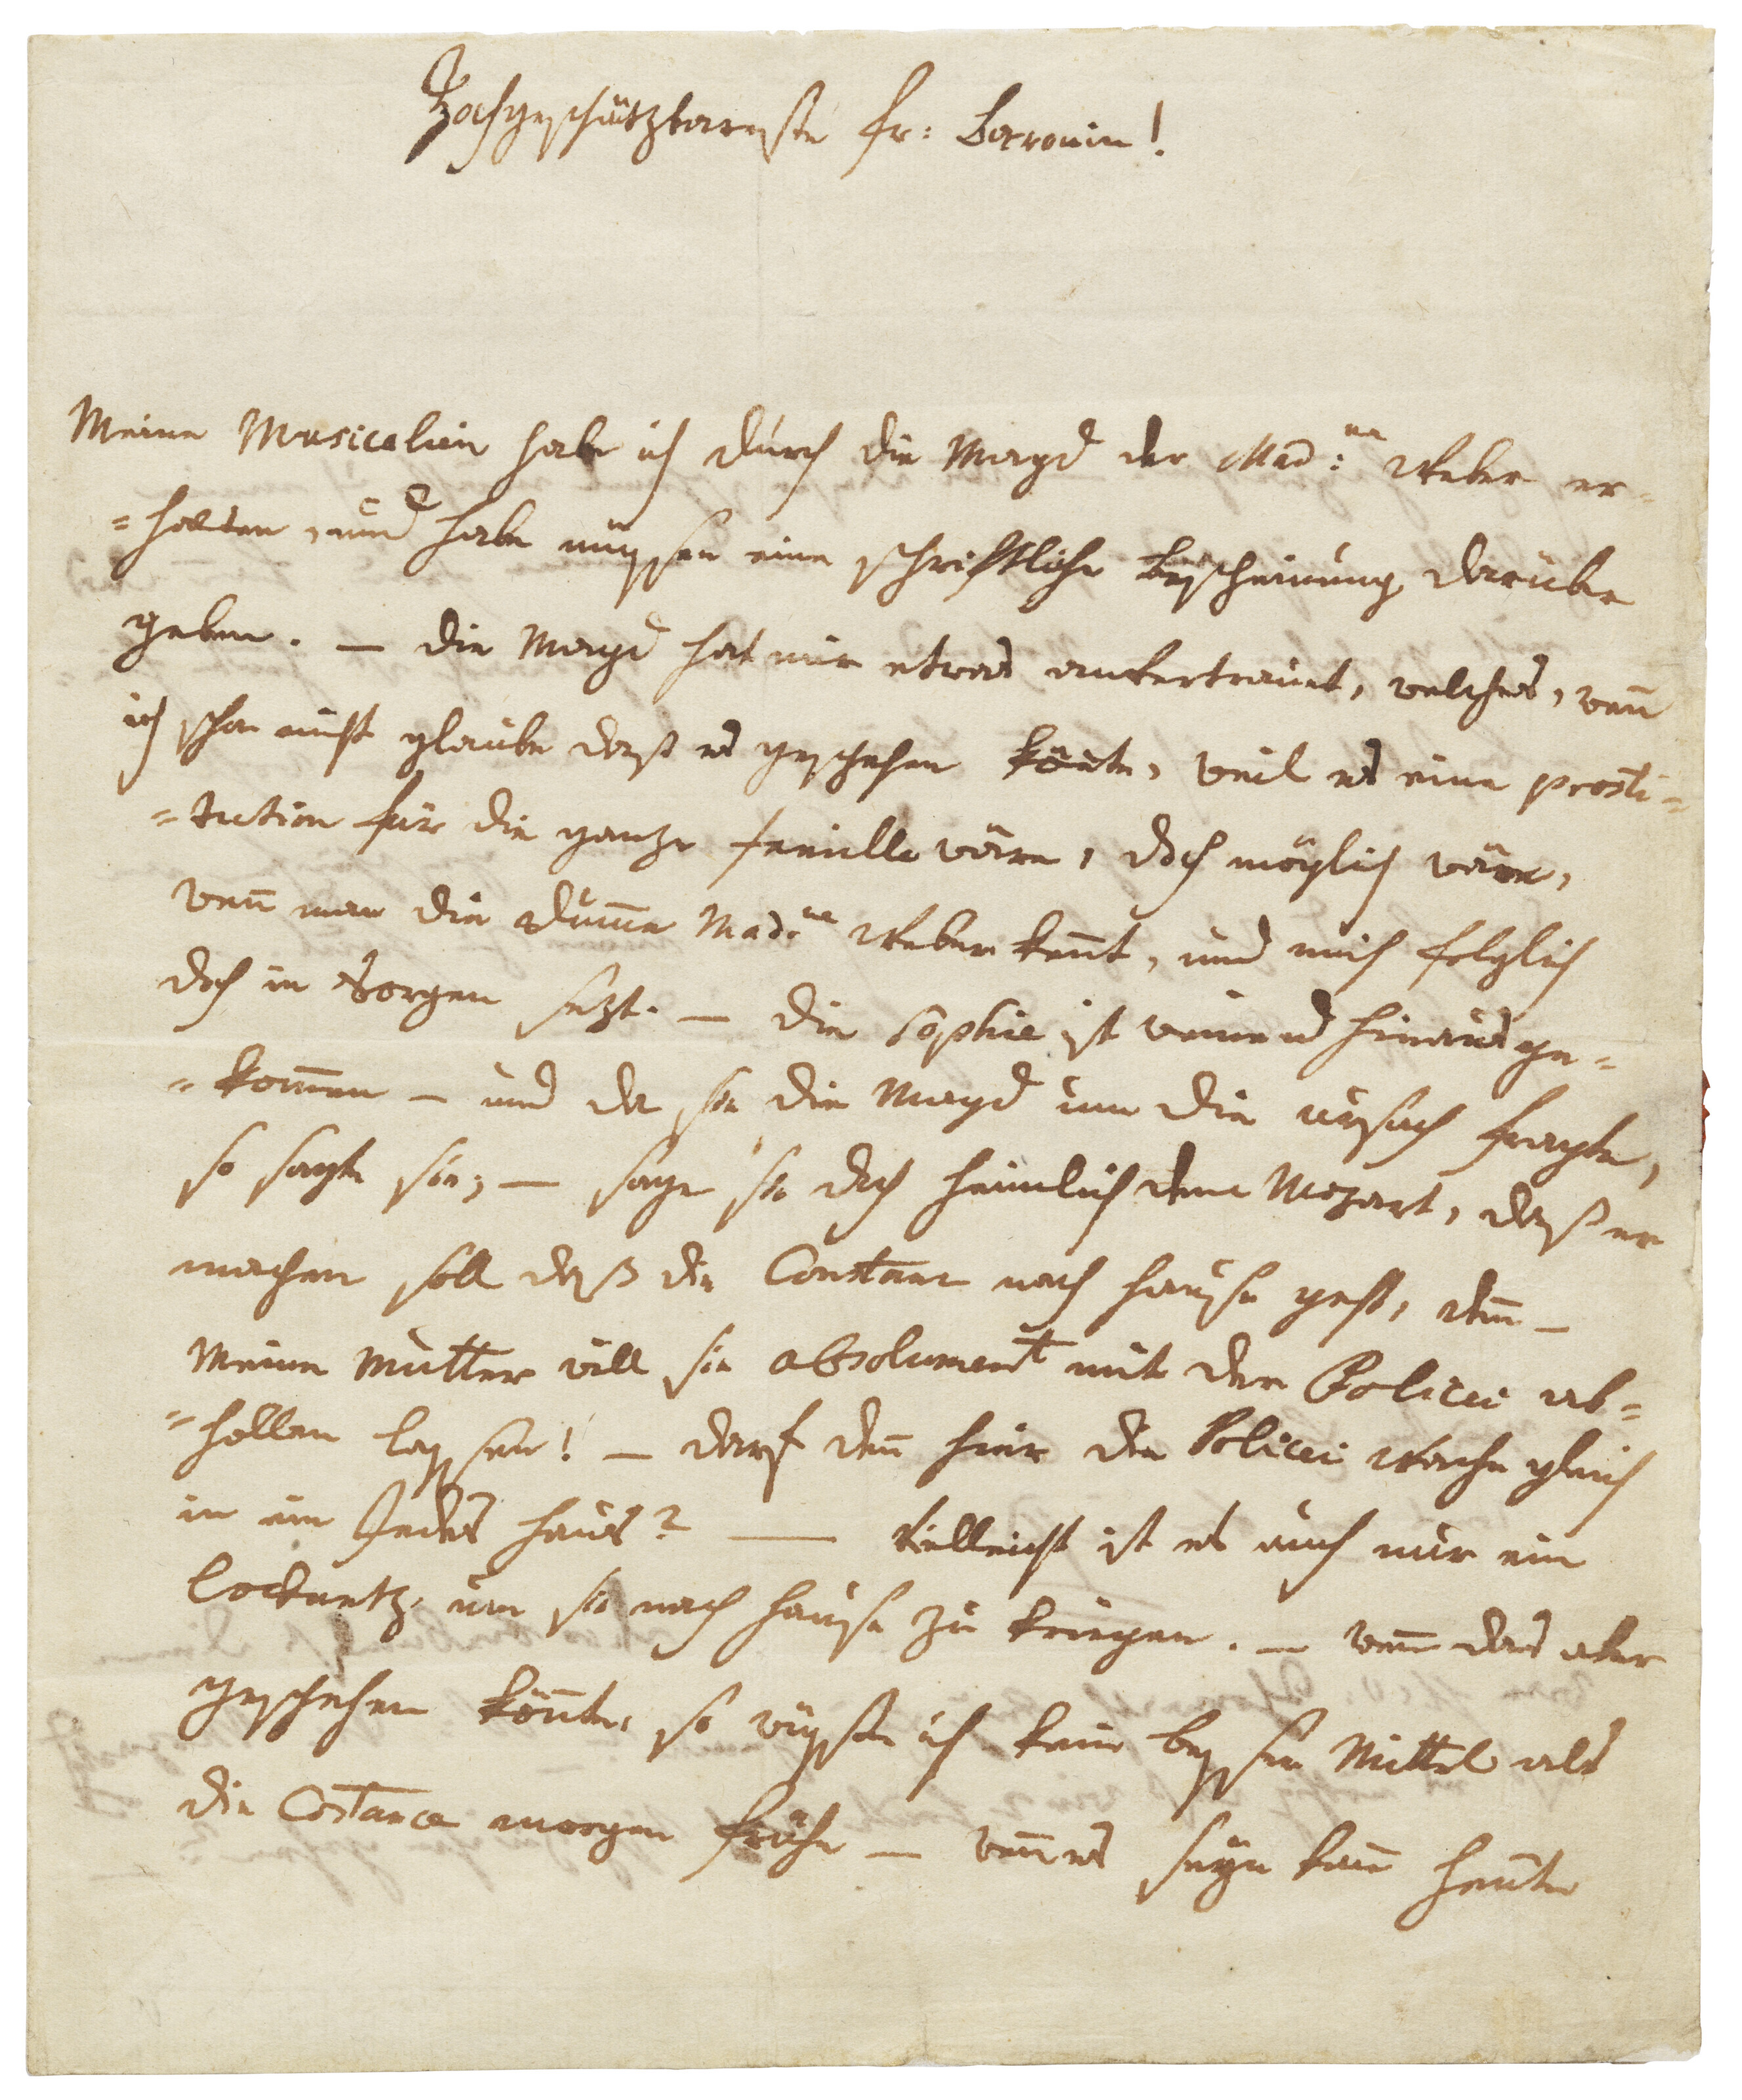 Hochgeschätzbareste fr: Baronin!
Meine Musicalien habe ich durch die Magd der Mad:me Weber er-
=halten, und habe müssen eine schriftliche bescheinung darüber
geben. — die Magd hat mir etwas anvertrauet, welches, wenn̄
ich schon nicht glaube daß es geschehen könte, weil es eine prosti=
=tution für die ganze familie wäre, doch möglich wäre,
wen̄ man die dum̄e Mad:me Weber kennt, und mich folglich
doch in Sorgen sezt. — die Sophie ist weinend hinausge=
=kom̄en — und da sie die Magd um die ursach fragte,
so sagte sie; — sage sie doch heimlich dem Mozart, daß er
machen soll daß die Constanz nach hause geht, den̄ —
Meine Mutter will sie absolument mit der Policei ab=
=hollen lassen! — darf den̄ hier die Policei Wache gleich
in ein Jedes haus? — Vielleicht ist es auch nur ein
locknetz, um sie nach hause zu kriegen. — wen̄ das aber
geschehen kön̄te, so wüsste ich kein besser Mittel als
die Costance morgen frühe — wen̄ es seyn kan̄ heute